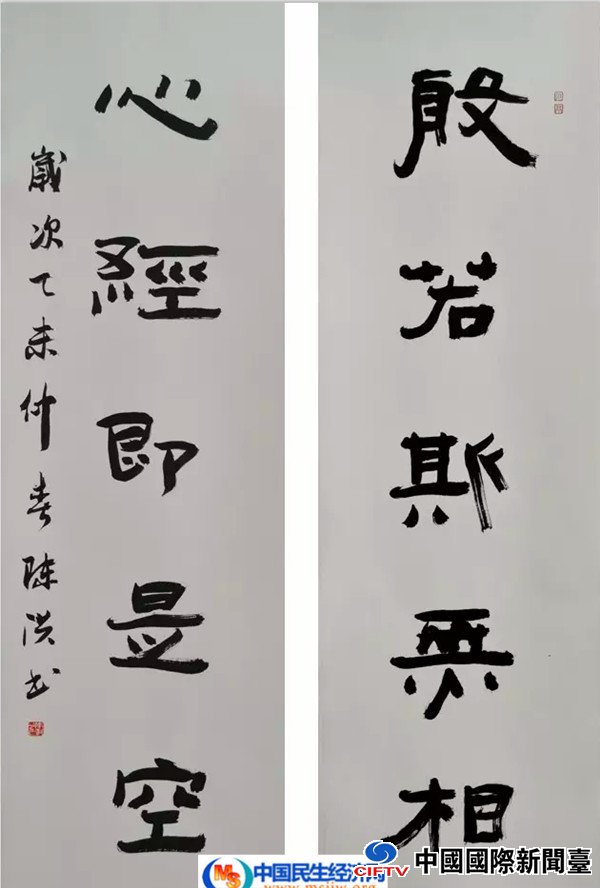 般若斯無相
心經即是空
歲次乙未仲春陈洪书
MS 中国民生经济网
www.msjjw.org
CIFTV 中國國際新聞臺